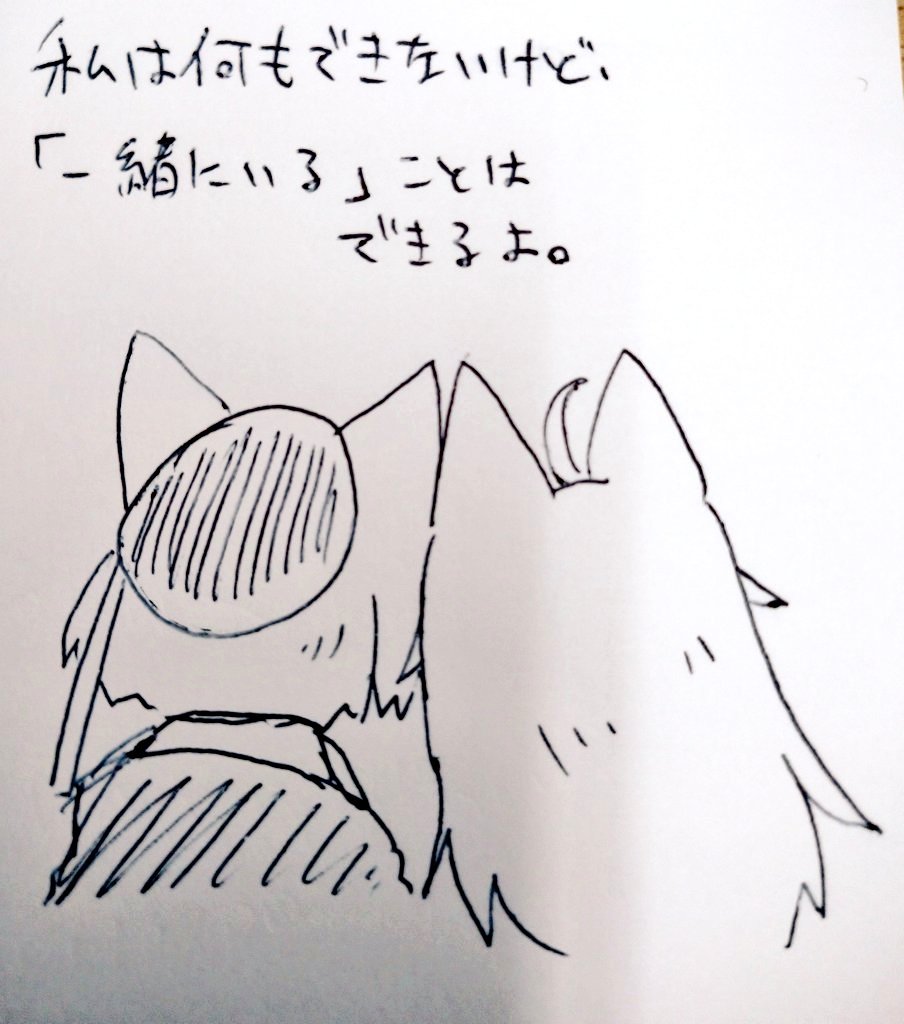 私は何もできないけど、
「一緒にいる」ことは
できるよ。